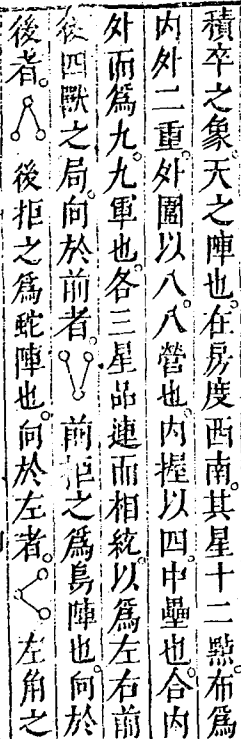 積卒之象。天之陣也。在房度西南。其星十二點。布爲
内外二重。外圍以八。八營也。内握以四。中壘也。合内
外而爲九。九軍也。各三星品連而相統。以爲左右前
後四獸之局。向於前者。前拒之爲鳥陣也。向於
後者。後拒之爲蛇陣也。向於左者。左角之